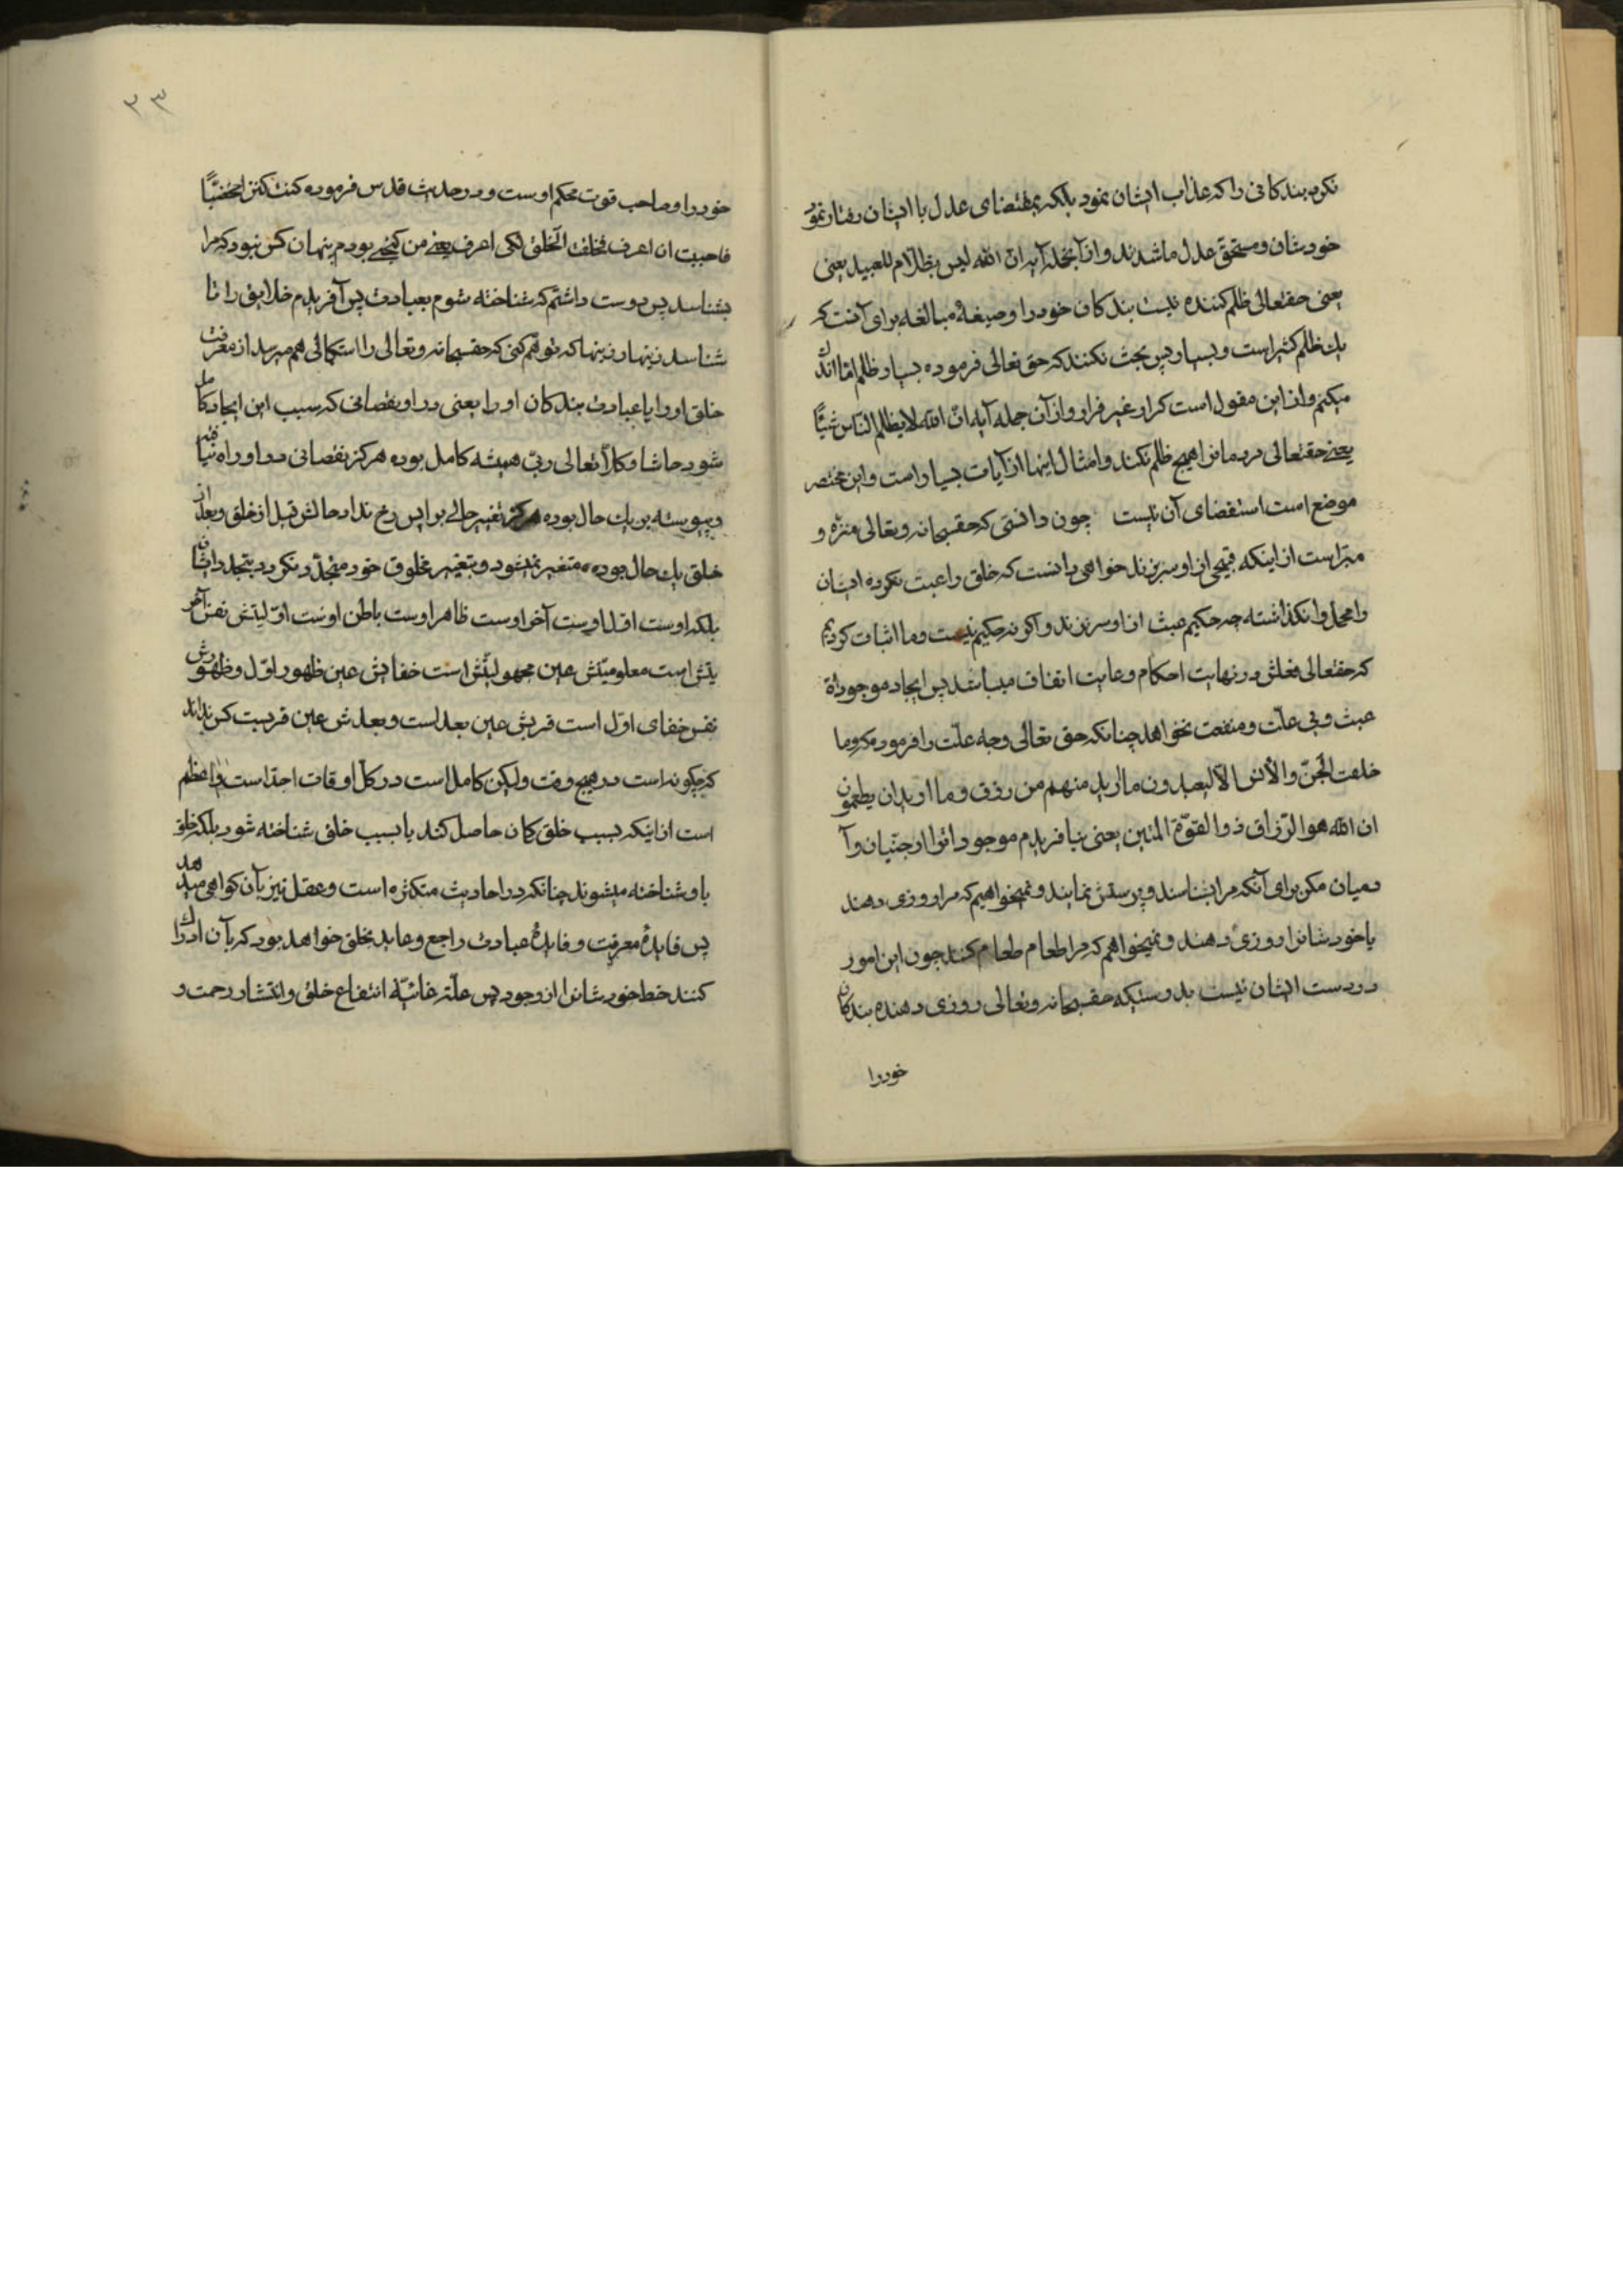 نکرده بندکانی را که عذاب ایشان نمود بلکه بمقتضای عدل با ایشان رفتار نمود
خودشان مستحق عدل ما شدند و از آنجمله آیه ان الله لیس بظلّام للعبید یعنی
یعنی حقتعالی ظلم کننده نیست بندکان خود را و صیغهٔ مبالغه برای آنست که
یك ظلم کثیر است و بسیار پس بحث نکنند که حق تعالی فرموده بسیار ظلم اما اندك
میکنم و از این مقول است کرار غیر فرار و از آن جمله آیه انّ الله لا یظلم الناس شیئًا
یعنی حقتعالی مردمانرا هیچ ظلم نکند و امثال اینها از آیات بسیار است و این مختصر
موضع است استقضای آن نیست چون دانستی که حقسبحانه و تعالی منزّه و
مبرّا است از اینکه قبیحی از او سرزند خواهی دانست که خلق را عبث نکرده ایشان
را مهمل وا نکذاشته چه حکیم عبث از او سرنزند و اکر نه حکیم نیست و ما اثبات کردیم
که حقتعالی فعلش در نهایت احکام و غایت اتقان میباشد پس ایجاد موجودات
عبث و بی علّت و منفعت نخواهد چنانکه حق تعالی وجه علّت را فرمود مکر وما
خلقت الجنّ والأنس الّا لیعبدون ما ارید منهم من رزق وما ارید ان یطعمون
ان الله هو الرّزاق ذو القوّة المتین یعنی نیافریدم موجوداتوا از جنّیان و آ
دمیان مکر برای آنکه مرا بشناسند و پرستش نمایند و نمیخواهیم که مرا روزی دهند
یا خودشانرا روزی دهند و نمیخواهم که مرا طعام طعام کنند چون این امور
در دست ایشان نیست بدرستیکه حقسبحانه و تعالی روزی دهنده بندکان
خود را
۲۳
خود را و صاحب قوت محکم اوست و در حدیث قدس فرموده کنت کنزا مخفیًّا
فاحببت ان اعرف فخلقت الخلق لکی اعرف یعنی من کنجی بودم پنهان کس نبود که مرا
بشناسد پس دوست داشتم که شناخته شوم بعبادت پس آفریدم خلایق را تا
شناسند زینهار زینها که توهّم کنی که حقسبحانه و تعالی را استکمالی هم میرسد از معرفت
خلق او را یا عبادت بندکان او را یعنی در او نقصانی که سبب این ایجاد کامل
شود حاشا و کلّا تعالی ربّی همیشه کامل بوده هرکز نقصانی در او راه نیافته
و پیوسته بر یك حال بوده هرکز تغییر حالی برایس رخ نداد حالش قبل از خلق و بعد از
خلق یك حال بوده متغیر نمیشود و بتغیر مخلوق خود متجدّد نکردد بتجدد ایشان
بلکه اوست اوّل اوست آخر اوست ظاهر اوست باطن اوست اوّلیتش نفس آخر
یتش است معلومیّتش عین مجهولیتش است خفایش عین ظهور اوّل و ظهورش
نفس خفای اوّل است قربش عین بعد است و بعدش عین قربست کس نداند
که چکونه است در هیچ وقت ولیکن کامل است در کلّ اوقات اجتدا است و اعظم
است از اینکه بسبب خلق کان حاصل کند یا بسبب خلق شناخته شود بلکه خلق
باو شناخته میشوند چنانکه در احادیث متکثره است و عقل نیز بآن کواهی میدهد
پس فایدهٔ معرفت و فایدهٔ عبادت راجع و عاید بخلق خواهد بود که بآن ادراك
کنند خط خودشانرا از وجود پس علّته غائیّه انتفاع خلق و انتشار رحمت و